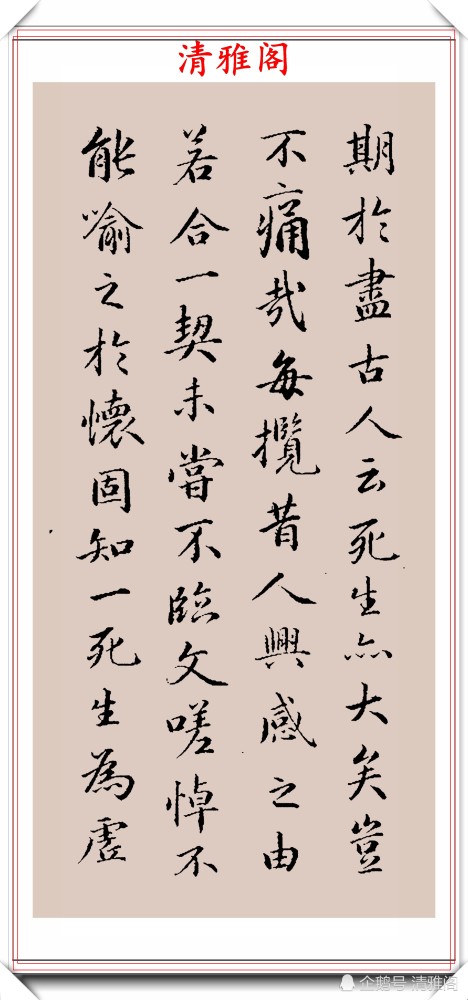 清雅阁
期於盡古人云死生亦大矣豈
不痛哉每攬昔人興感之由
若合一契未嘗不臨文嗟悼不
能喻之於懷固知一死生為虛
企鹅号 清雅阁